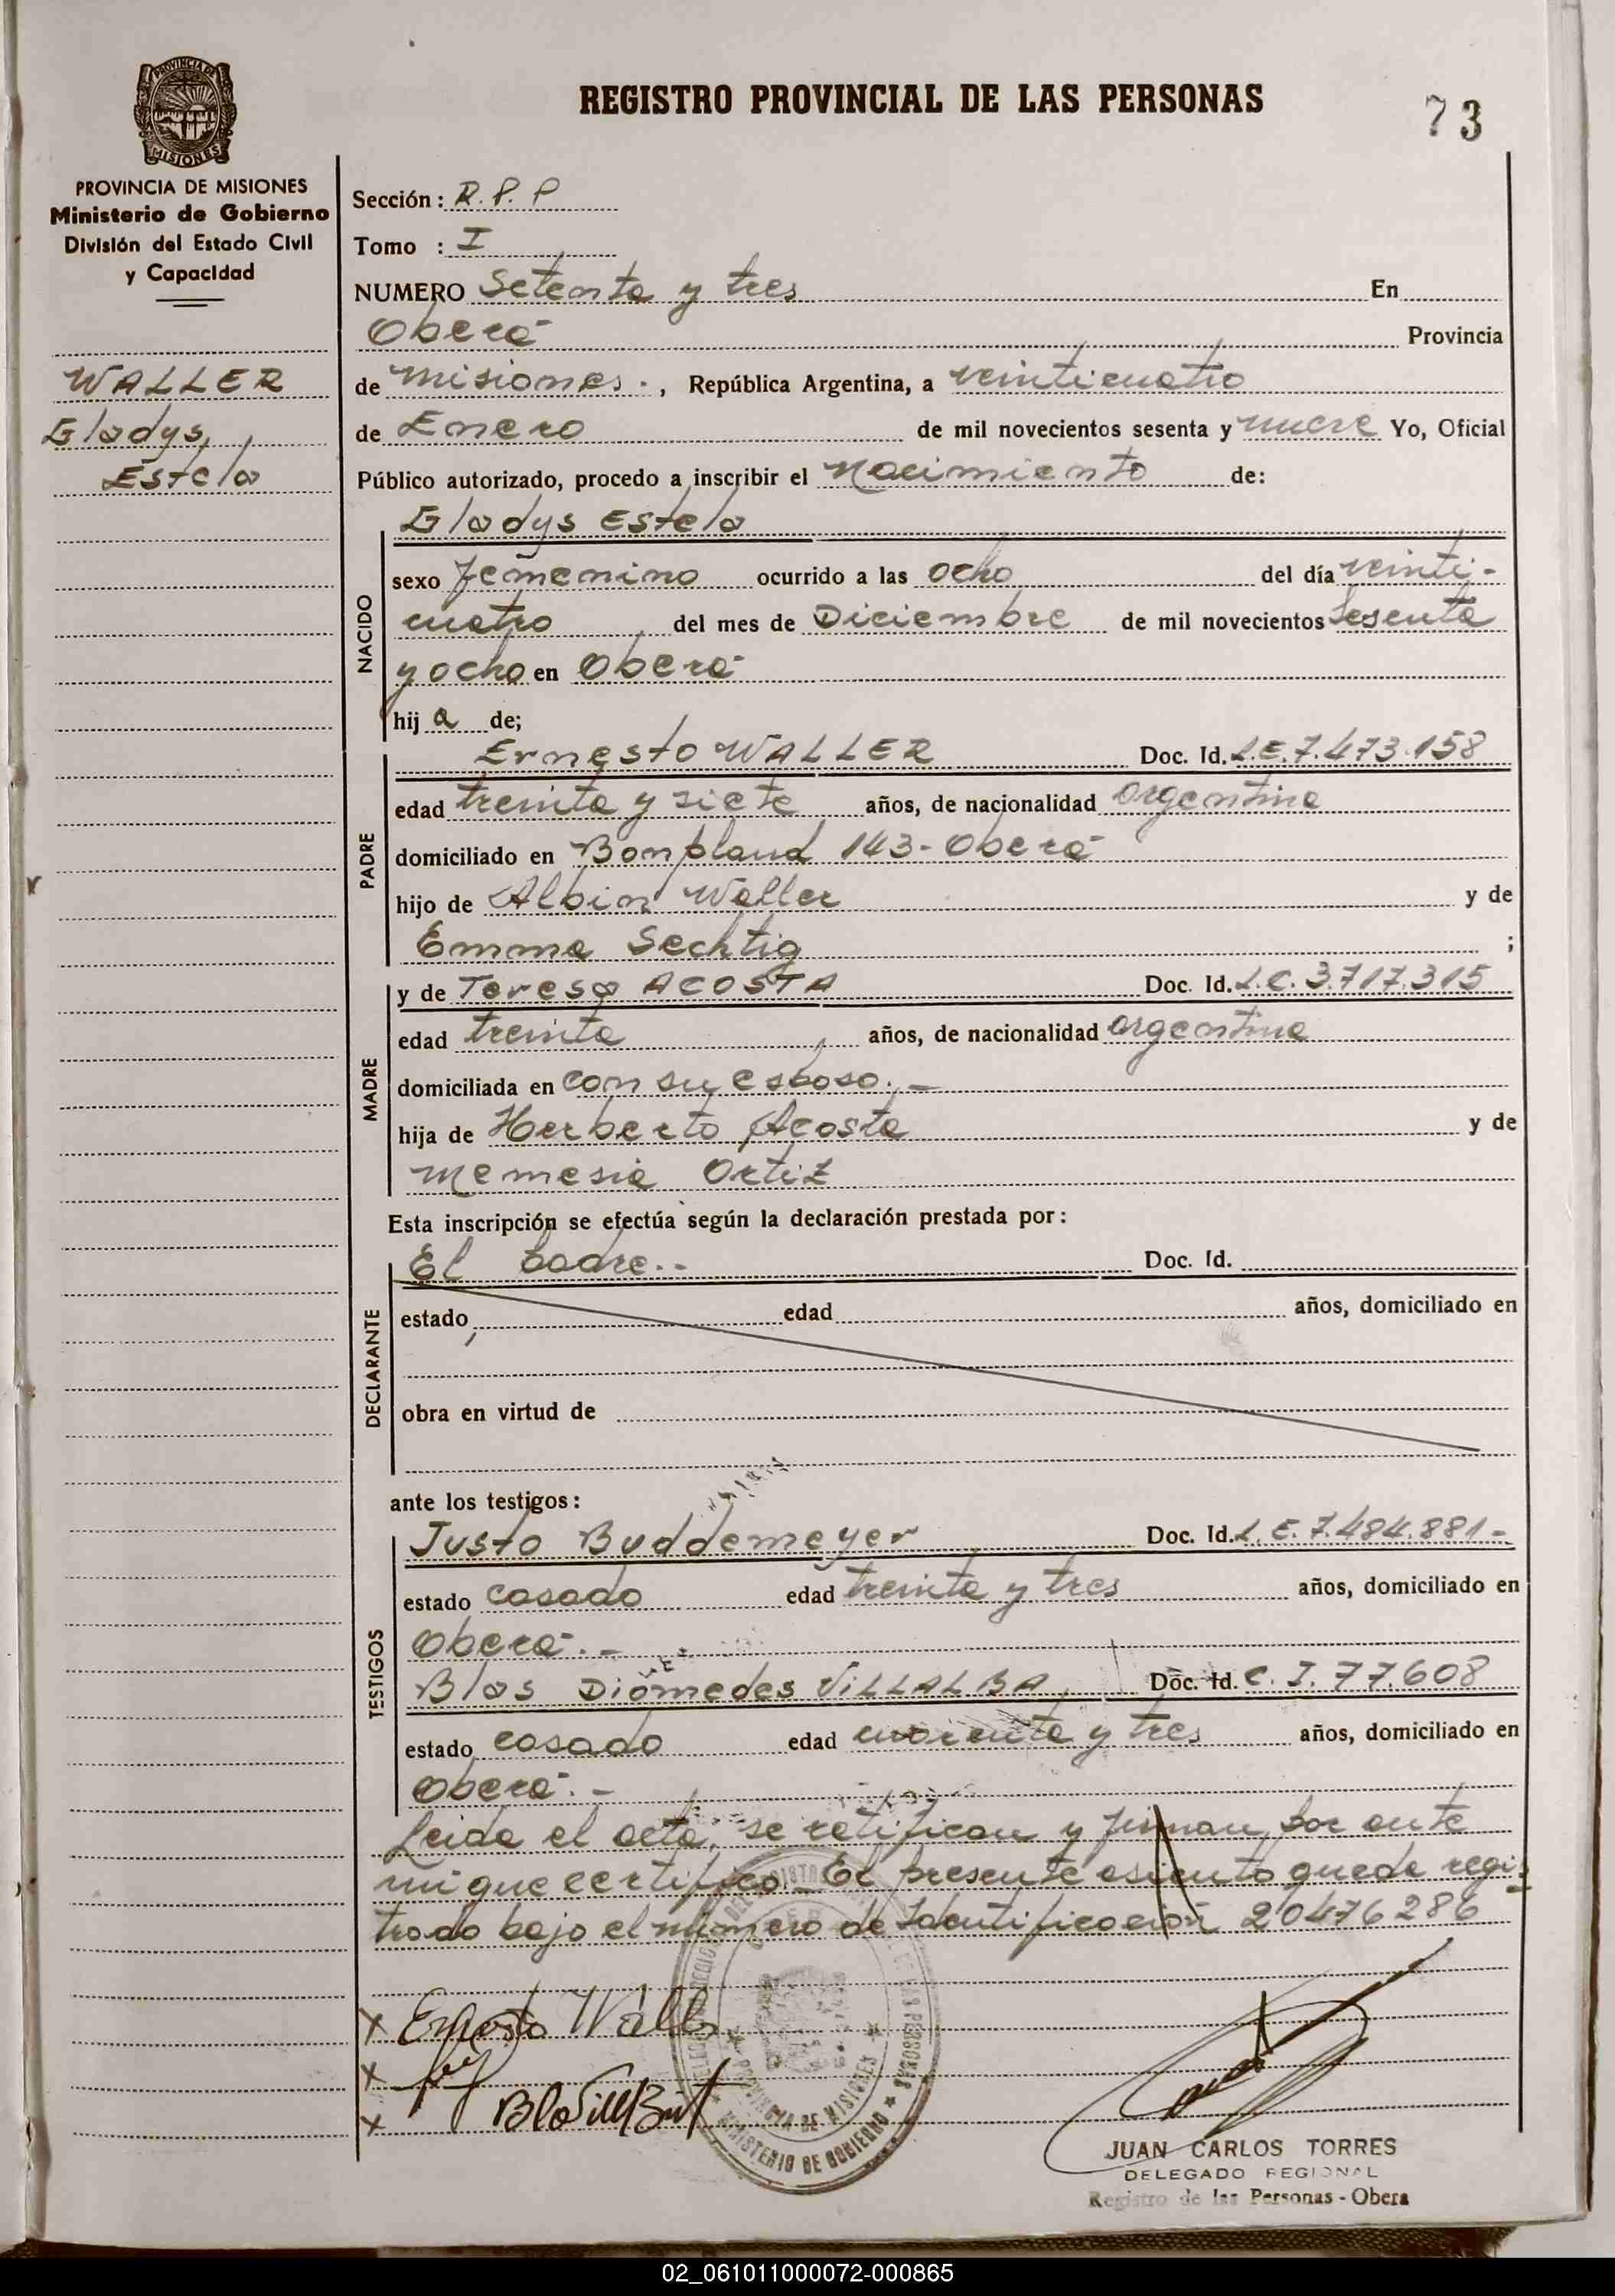 REGISTRO PROVINCIAL DE LAS PERSONAS
73
PROVINCIA DE
MISIONES
PROVINCIA DE MISIONES
Ministerio de Gobierno
División del Estado Civil
y Capacidad
WALLER
Gladys,
Estela
Sección: R.P.P
Tomo : I
NUMERO Setenta y tres En
Oberá Provincia
de Misiones., República Argentina, a veinticuatro
de Enero de mil novecientos sesenta y nueve Yo, Oficial
Público autorizado, procedo a inscribir el Nacimiento de:
Gladys Estela
NACIDO
sexo femenino ocurrido a las ocho del día veinti-
cuatro del mes de Diciembre de mil novecientos sesenta
y ocho en Oberá
hij a de;
PADRE
Ernesto WALLER Doc. Id. L.E.7.473.158
edad treinta y siete años, de nacionalidad argentina
domiciliado en Bonpland 143-Oberá
hijo de Albin Waller y de
Emma Sechtig ;
MADRE
y de Teresa ACOSTA Doc. Id. L.C. 3.717.315
edad treinta años, de nacionalidad argentina
domiciliada en con su esposo.-
hija de Herberto Acosta y de
Memesia Ortiz
Esta inscripción se efectúa según la declaración prestada por:
DECLARANTE
El padre.- Doc. Id.
estado, edad años, domiciliado en
obra en virtud de
ante los testigos:
TESTIGOS
Justo Buddemeyer Doc. Id. L.E. 7.484.881-
estado casado edad treinta y tres años, domiciliado en
Oberá.-
Blas Diómedes VILLALBA, Doc. Id. C. I. 77.608
estado casado edad cuarenta y tres años, domiciliado en
Oberá.-
Leida el acta, se ratifican y firman por ante
mi que certifico. El presente asiento queda regis
trado bajo el número de Identificación 20476286
x Ernesto Waller
x
x
PROVINCIA DE MISIONES
MINISTERIO DE GOBIERNO
JUAN CARLOS TORRES
DELEGADO REGIONAL
Registro de las Personas - Obera
02_061011000072-000865